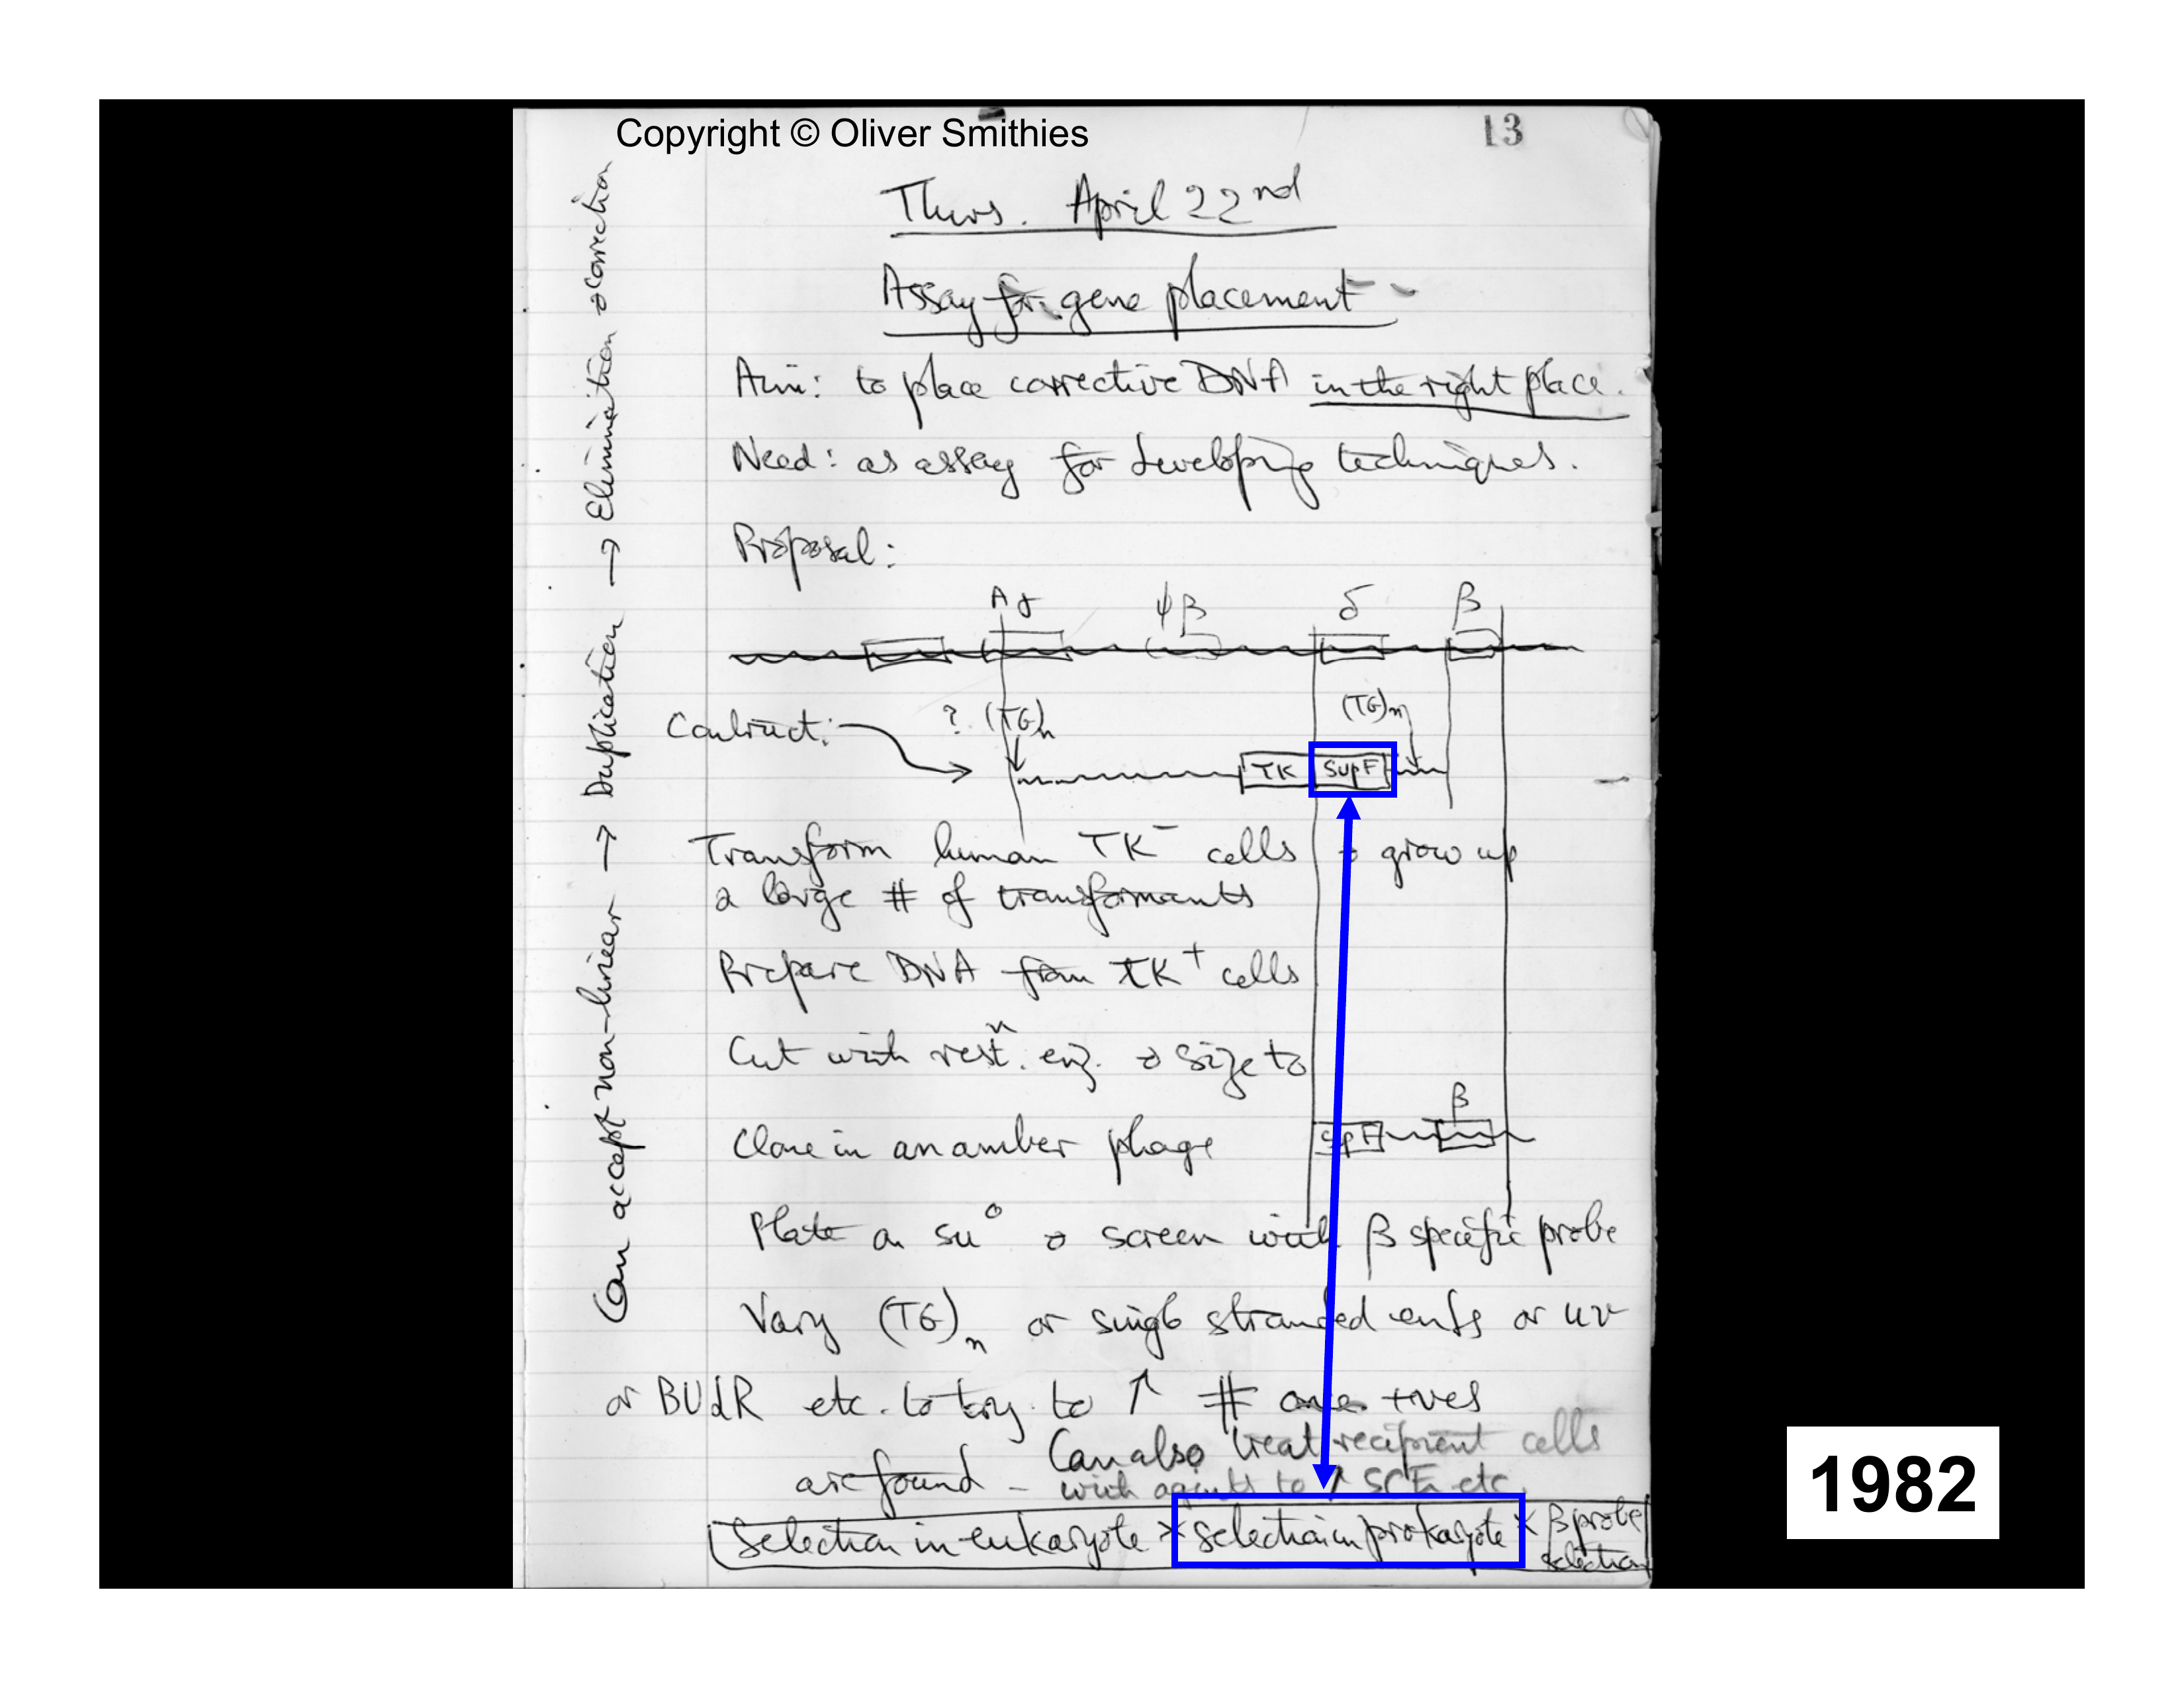 Copyright © Oliver Smithies
13
Thurs. April 22nd
Assay for gene placement
Aim: to place corrective DNA in the right place.
Need: as assay for developing techniques.
Proposal:
Aγ ψβ δ β
? (TG)n (TG)n
Contruct:
TK SupF
Transform human TK⁻ cells & grow up
a large # of transformants
Prepare DNA from TK⁺ cells
Cut with restn. enz. & size to
β
Clone in an amber phage SpF
Plate on su° & screen with β specific probe
Vary (TG)n or single stranded ends or uv
or BUdR etc. to try to ↑ # +ves
are found - Can also treat recipient cells
with agents to ↑ SCE etc.
Selection in eukaryote × selection in prokaryote × β probe selection
Can accept non-linear → Duplication → Elimination & correction
1982